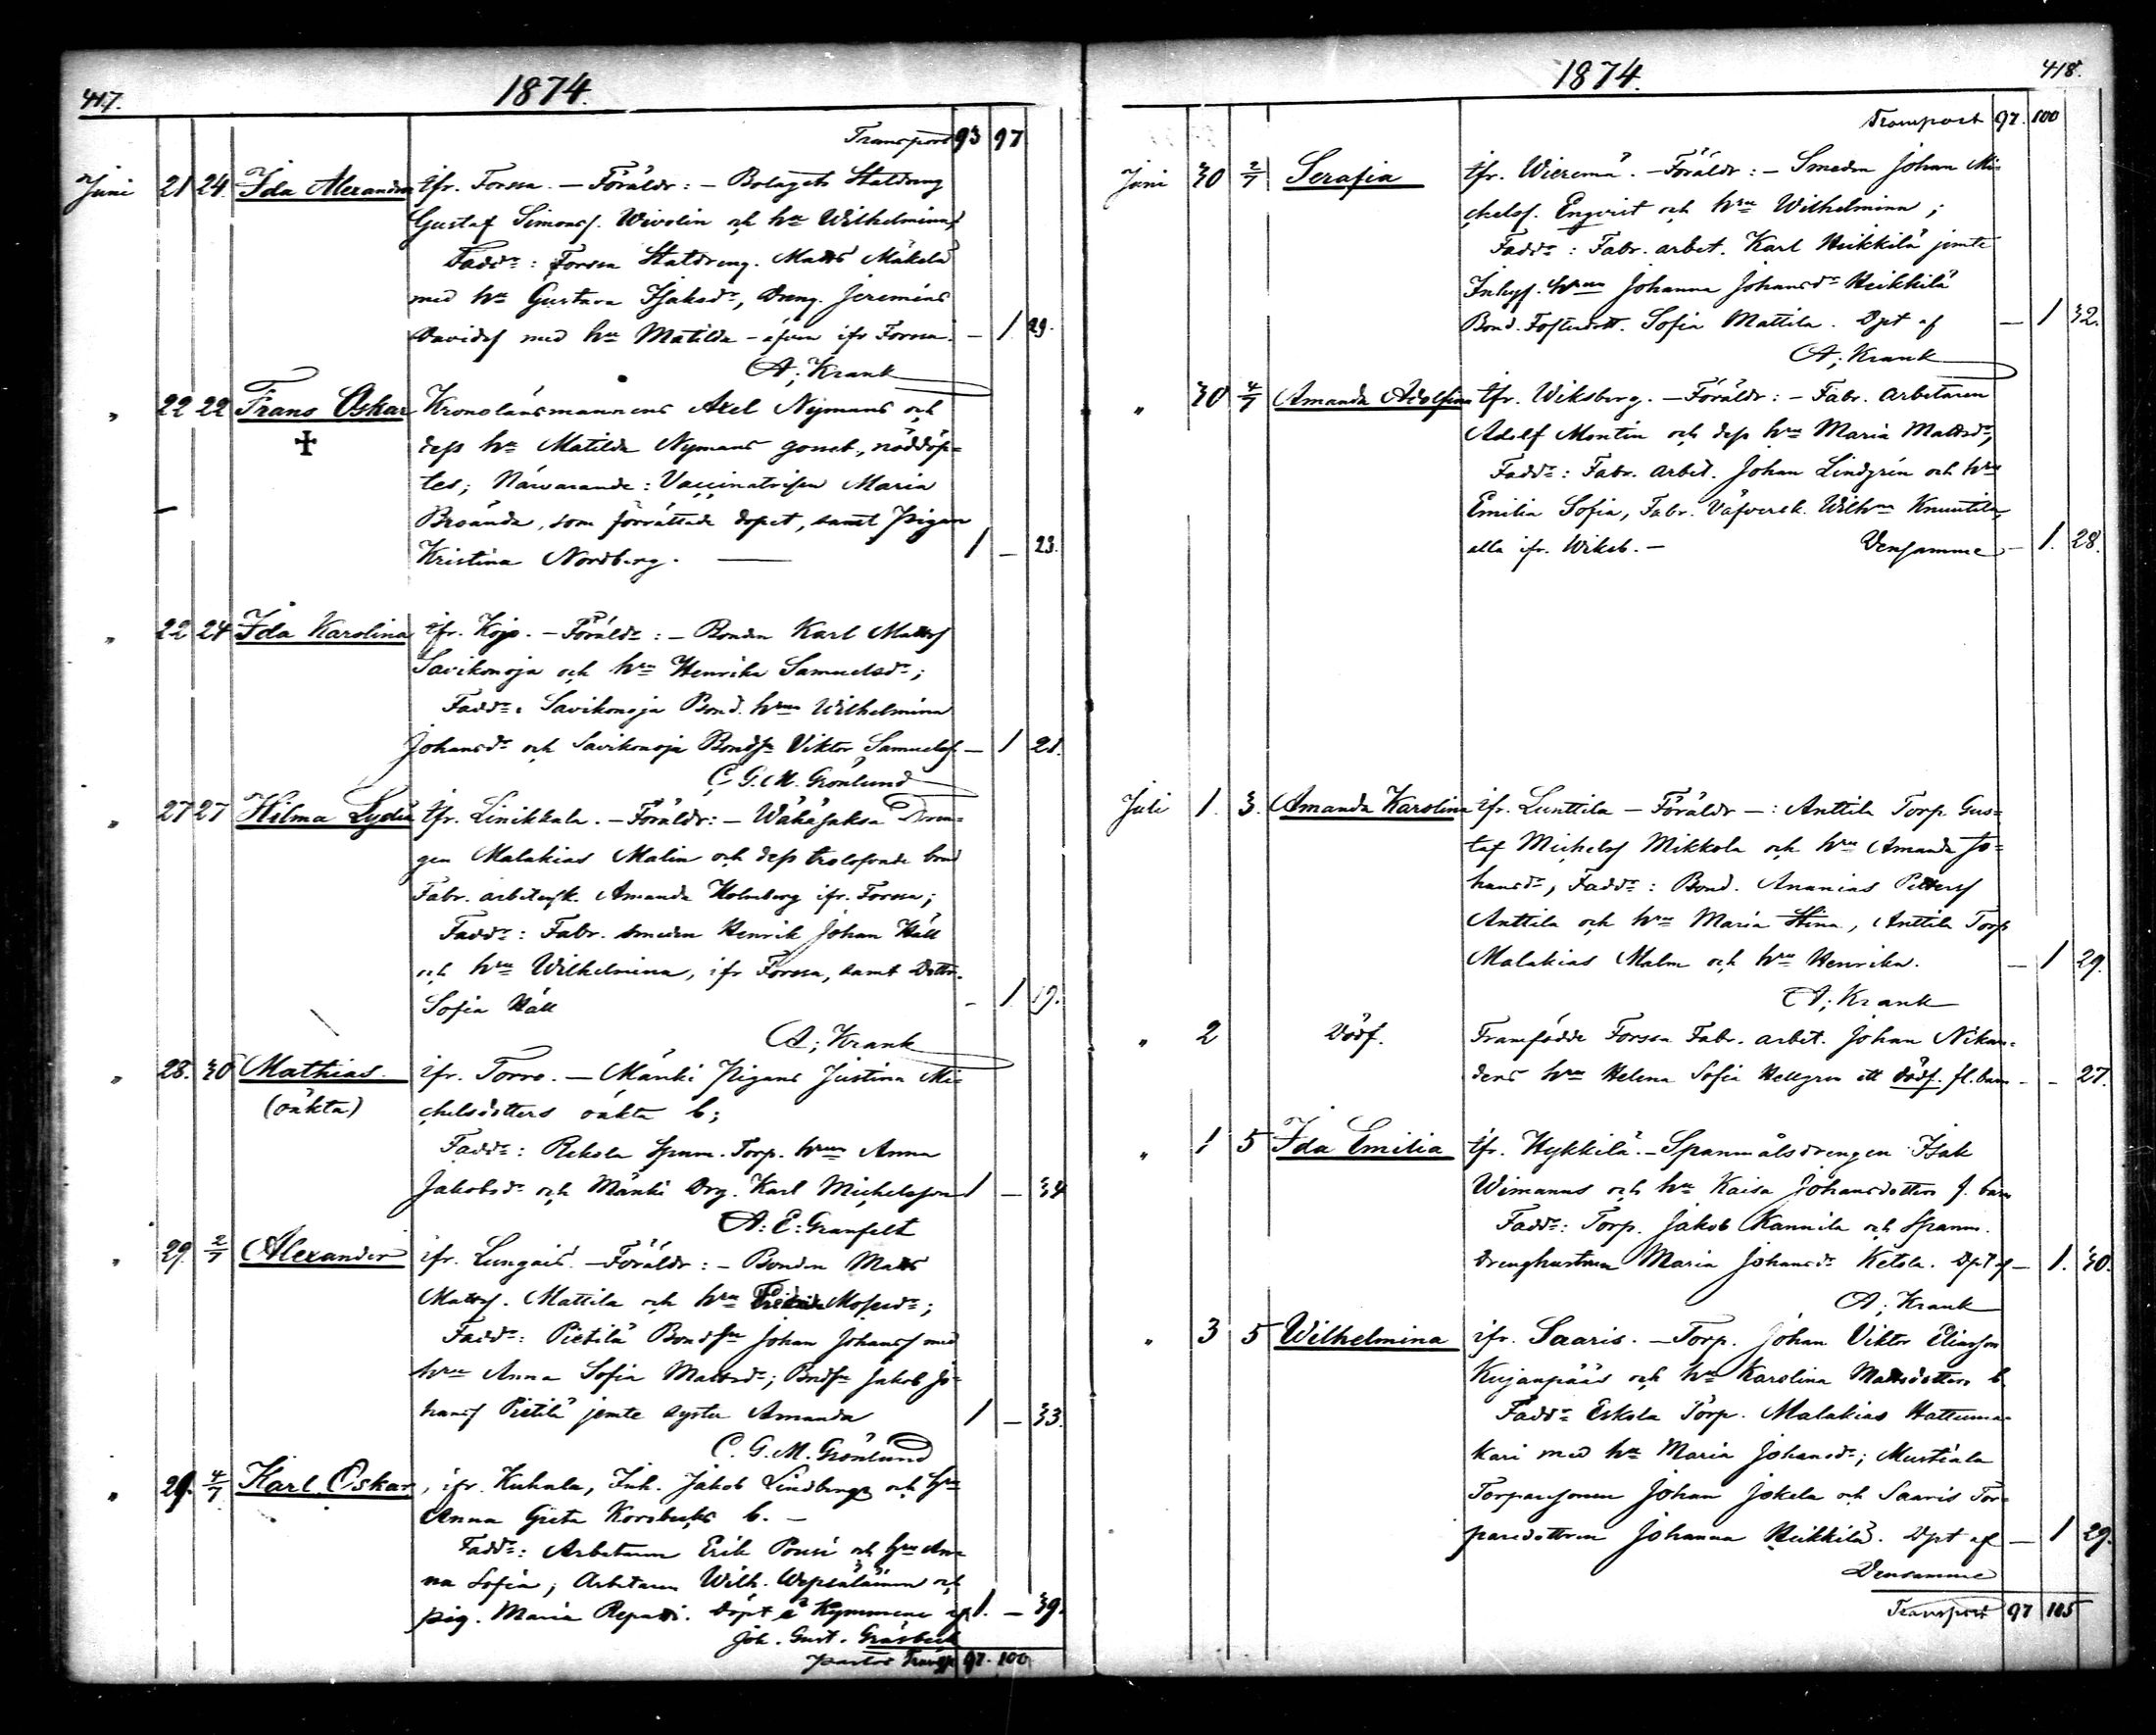 417.
1874.
Transport 93 97
Juni 21 24 Ida Alexandra ifr. Forssa. – Föräldr: – Bolagets Staldreng
Gustaf Simonss. Wivolin och hu Wilhelmina;
Faddr: Forssa Staldreng. Matts Mäkelä
med hu Gustava Isaksdr, Dreng. Jeremias
Davidss med hu Matilda – äfven ifr Forssa. – 1 29.
A; Krank
„ 22 22 Frans Oskar Kronolänsmannens Axel Nymans och
✝ dess hu Matilda Nymans gosseb., nöddöp=
tes; Närvarande: Vaccinatrisen Maria
Broända, som förrättade dopet, samt Pigan
Kristina Nordberg. — 1 – 23.
„ 22 24 Ida Karolina ifr. Kojo. – Föräldr: – Bonden Karl Mattss
Savikonoja och hru Henrika Samuelsdr;
Faddr: Savikonoja Bond. hrun Wilhelmina
Johansdr och Savikonoja Bondsn Viktor Samuelss. – 1 21.
C. G. M. Grönlund
„ 27 27 Hilma Lydia ifr. Linikkala. – Föräldr: – Wähäjaksa Dren=
gen Malakias Malin och dess trolofvade brud
Fabr. arbetersk. Amanda Holmberg ifr. Forssa;
Faddr: Fabr. smeden Henrik Johan Häll
och hru Wilhelmina, ifr Forssa, samt Dottr.
Sofia Häll – 1 19.
A; Krank
„ 28. 30 Mathias ifr. Torro. – Mänki Pigans Justina Mi=
(oäkta) chelsdotters oäkta b;
Faddr: Rekola Spnm. Torp. hrun Anna
Jakobsdr och Mänki Drg. Karl Michelsson 1 – 34
A: E: Granfelt
„ 29. 2/7 Alexander ifr. Lungais. – Föräldr: – Bonden Matts
Mattss. Mattila och hru Mosesdr;
Faddr: Pietilä Bondsn Johan Johanss med
hru Anna Sofia Mattsdr; Bndsn Jakob Jo=
hanss Pietilä jemte syster Amanda 1 – 33.
C. G. M. Grönlund
„ 29. 4/7 Karl Oskar, ifr. Kuhala, Inh. Jakob Lindbergs och hru
Anna Greta Korsbecks b. –
Faddr: Arbetaren Erik Pousi och hru An=
na Sofia; Arbetaren Wilh. Wepsäläinen och
pig. Maria Repatti. Döpt i Kymmene af 1. – 39.
Joh. Gust. Gråsbeck
pastor Transp 97. 100
418.
1874.
Transport 97. 100
Juni 30 2/7 Serafia ifr. Wieremä. – Föräldr: – Smeden Johan Mi=
chelss. Engvist och hru Wilhelmina;
Faddr: Fabr. arbet. Karl Heikkilä jemte
Inhys. hrun Johanna Johansdr Heikkilä
Bond. Fosterdott. Sofia Mattila. Dpt af – 1 32.
A; Krank
„ 30 4/7 Amanda Adolfina ifr. Wiksberg. – Föräldr: – Fabr. arbetaren
Adolf Montin och dess hru Maria Mattsdr;
Faddr: Fabr. arbet. Johan Lindgrén och hru
Emilia Sofia, Fabr. Väfversk. Wilhna Knuutila,
alla ifr. Wiksb. – Densamme – 1. 28.
Juli 1. 3. Amanda Karolina ifr. Lunttila – Föräldr –: Anttila Torp. Gus=
taf Michelss Mikkola och hru Amanda Jo=
hansdr, Faddr: Bond. Ananias Petterss
Anttila och hru Maria Stina, Anttila Torp
Malakias Malm och hru Henrika. – 1 29.
A; Krank
„ 2 Dödf. Framfödde Forssa Fabr. arbet. Johan Nikan=
ders hru Helena Sofia Hellgren ett dödf. fl. barn – – 27.
„ 1 5 Ida Emilia ifr. Hykkilä. – Spanmålsdrengen Isak
Wimanns och hu Kaisa Johansdotters f. barn
Faddr: Torp. Jakob Kannila och Spanm.
drenghustrun Maria Johansdr Ketola. Dpt af – 1. 30.
A; Krank
„ 3 5 Wilhelmina ifr. Saaris. – Torp. Johan Viktor Eliasson
Kujanpääs och hu Karolina Mattsdotters b.
Faddr Eskola Torp. Malakias Hattuma=
kari med hu Maria Johansdr; Mustiala
Torparesonen Johan Jokela och Saaris Tor=
paredottren Johanna Heikkilä. Dpt af – 1 29.
Densamme
Transport 97 105